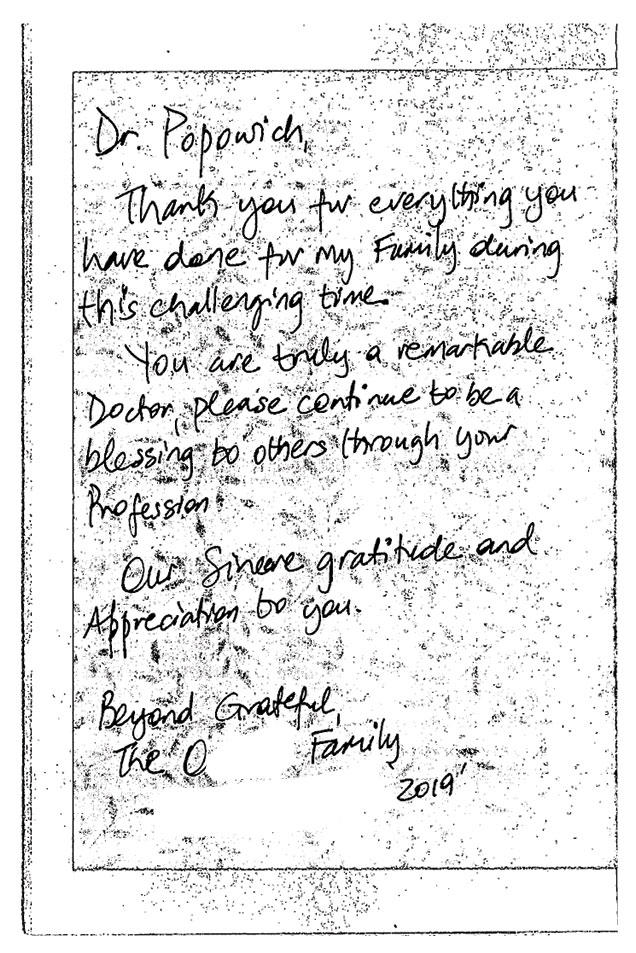 Dr. Popowich,
Thank you for everything you
have done for my Family during
this challenging time.
You are truly a remarkable
Doctor, please continue to be a
blessing to others through your
Profession
Our Sincere gratitude and
Appreciation to you.
Beyond Grateful,
The O Family
2019'